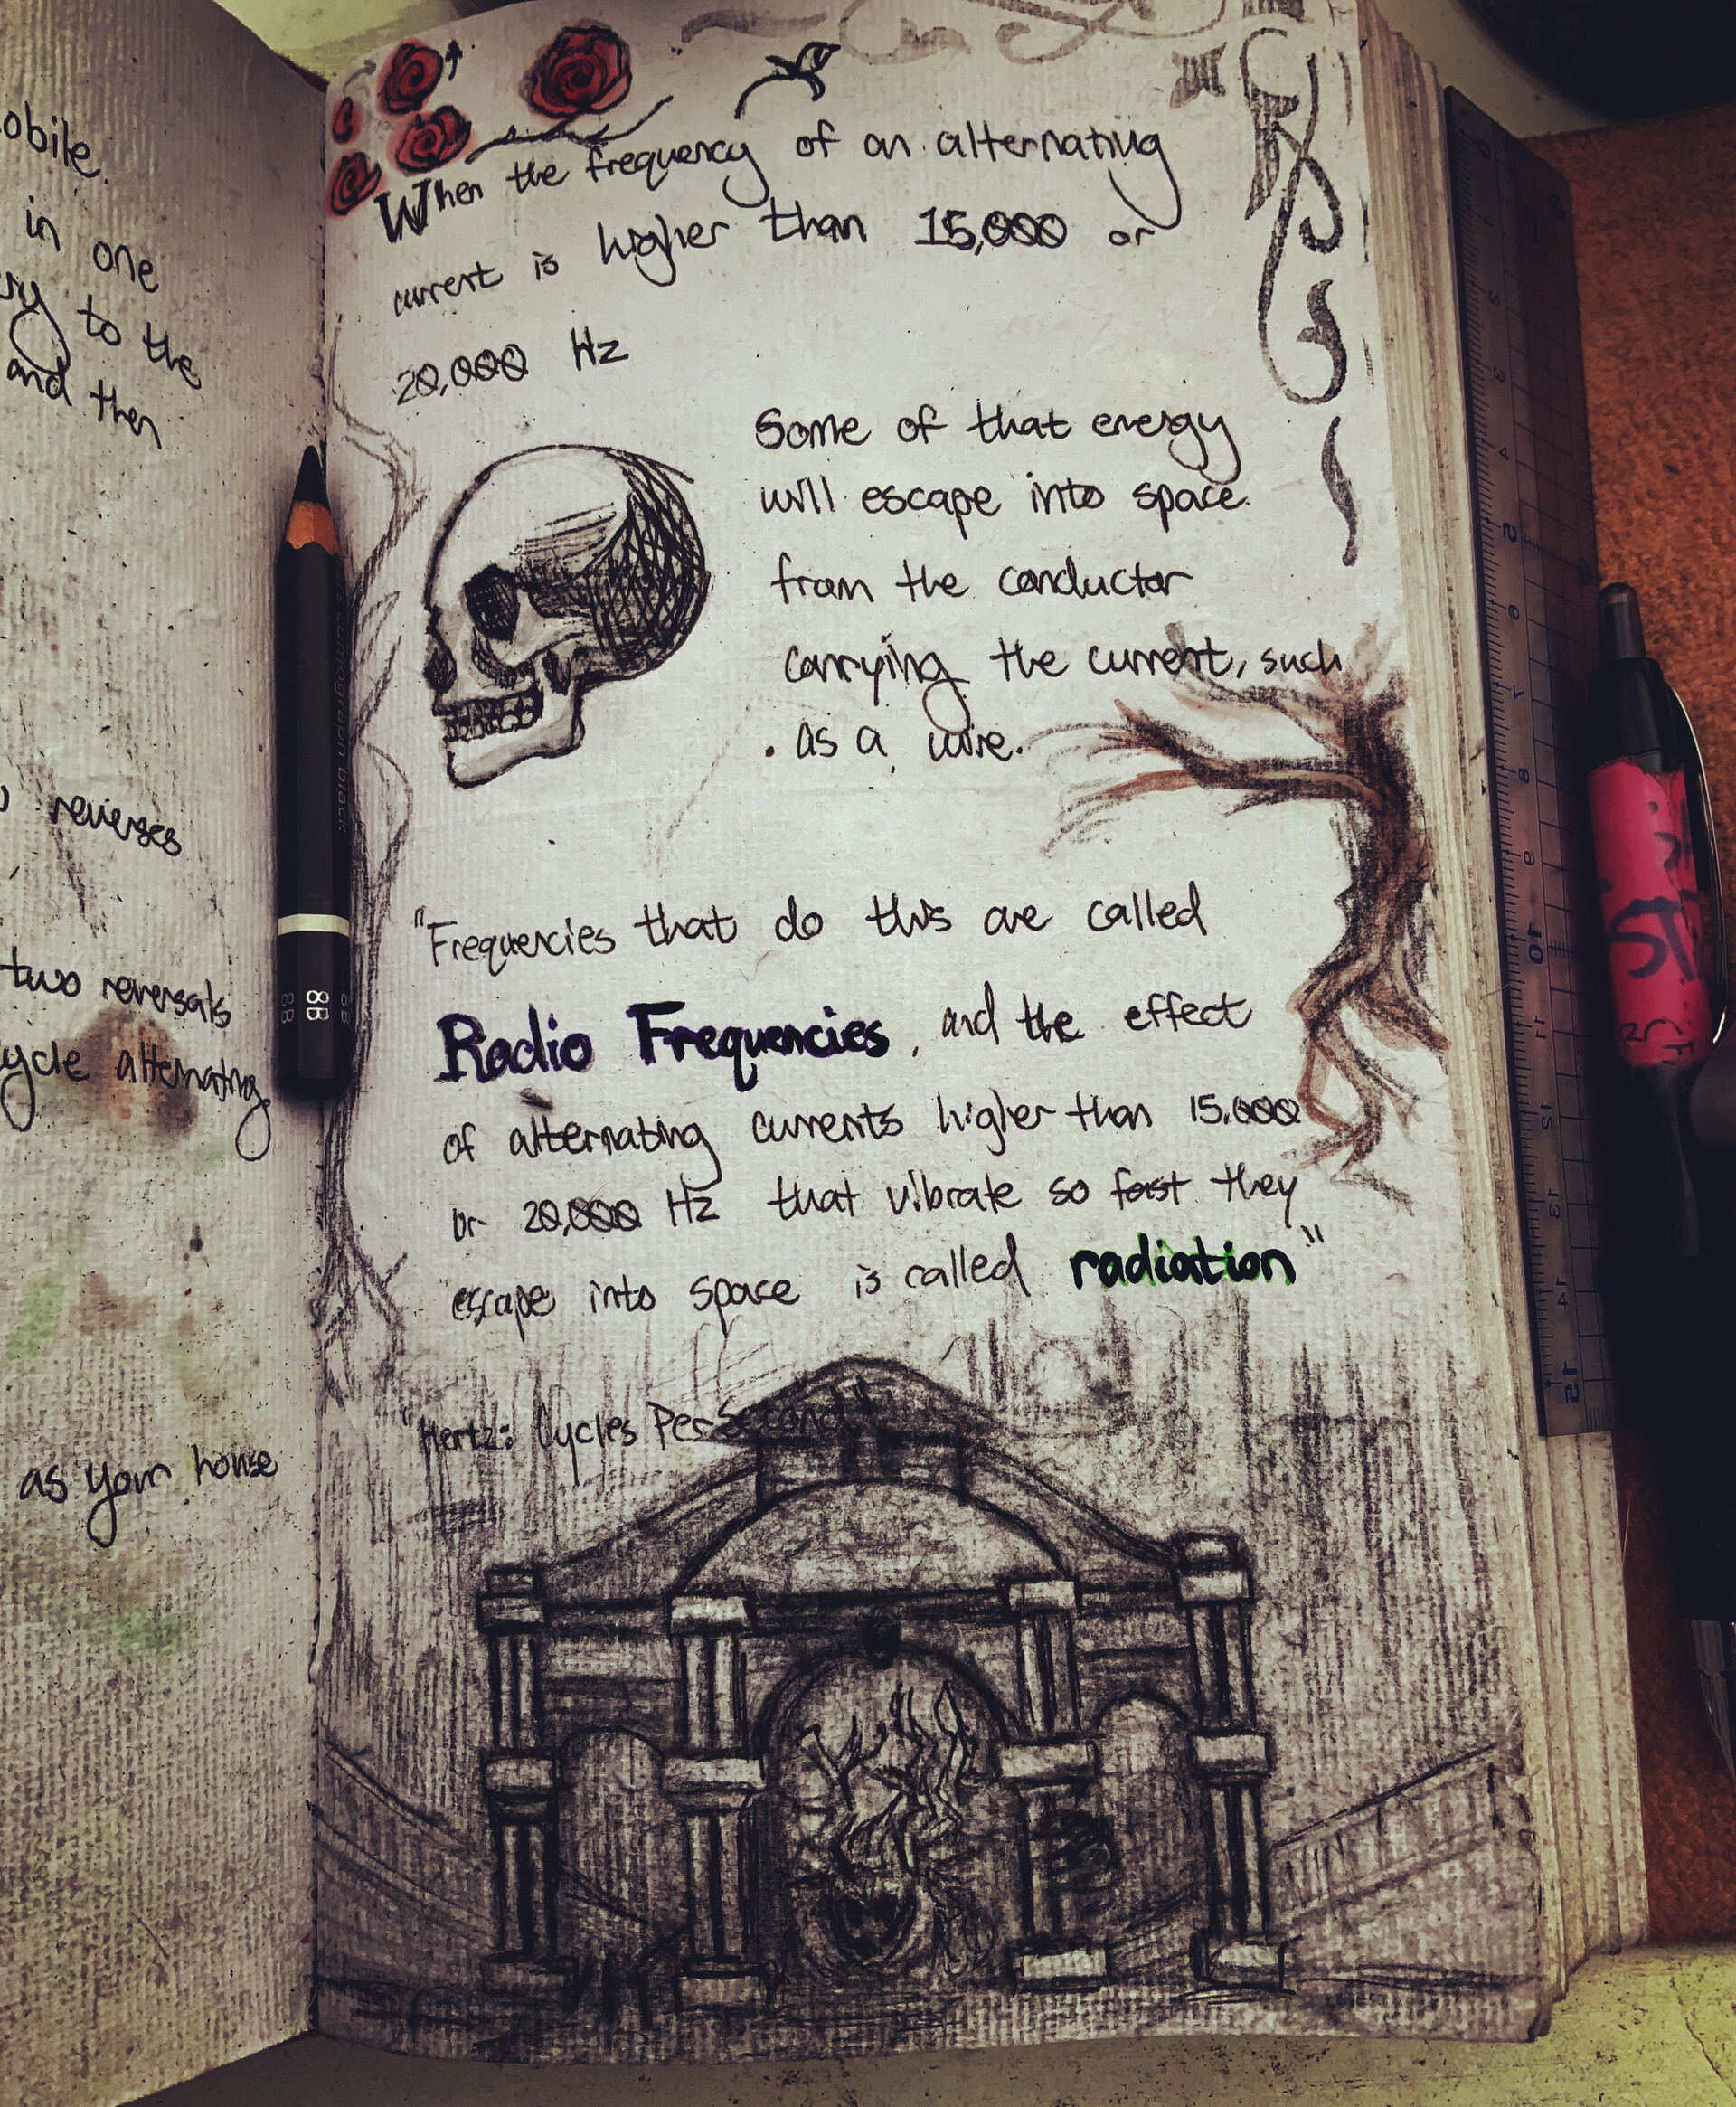 obile.
in one
ry to the
and then
reverses
two reversals
ycle alternating
as your house
When the frequency of an alternating
current is higher than 15,000 or
20,000 Hz
Some of that energy
will escape into space
from the conductor
carrying the current, such
as a wire.
"Frequencies that do this are called
Radio Frequencies, and the effect
of alternating currents higher than 15.000
or 20,000 Hz that vibrate so fast they
escape into space is called radiation"
"Hertz: Cycles Per Second"
8B
8B
8B
0
1
2
3
4
5
6
7
8
9
10
11
12
13
14
15
ST